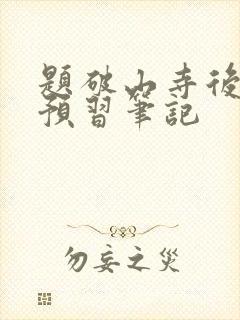 題破山寺後
預習筆記
勿妄之災